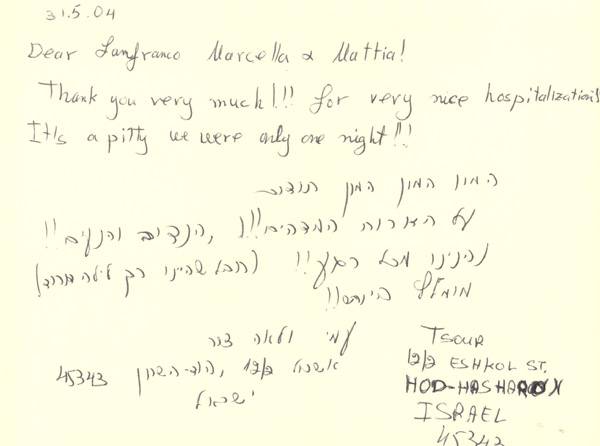 31.5.04
Dear Lanfranco Marcella & Mattia!
Thank you very much!!! for very nice hospitalization!!
It's a pitty we were only one night!!!
המון המון המון תודות
על הארוח המדהים!!!, הנדיב והנעים!!
נהנינו מכל רגע!! (חבל שהיינו רק לילה
מומלץ ביותר!!
עמי ולאה צור
אשכול 12/2, הוד-השרון 45343
ישראל
Tsour
12/2 ESHKOL ST.
HOD-HASHARON
ISRAEL
45342